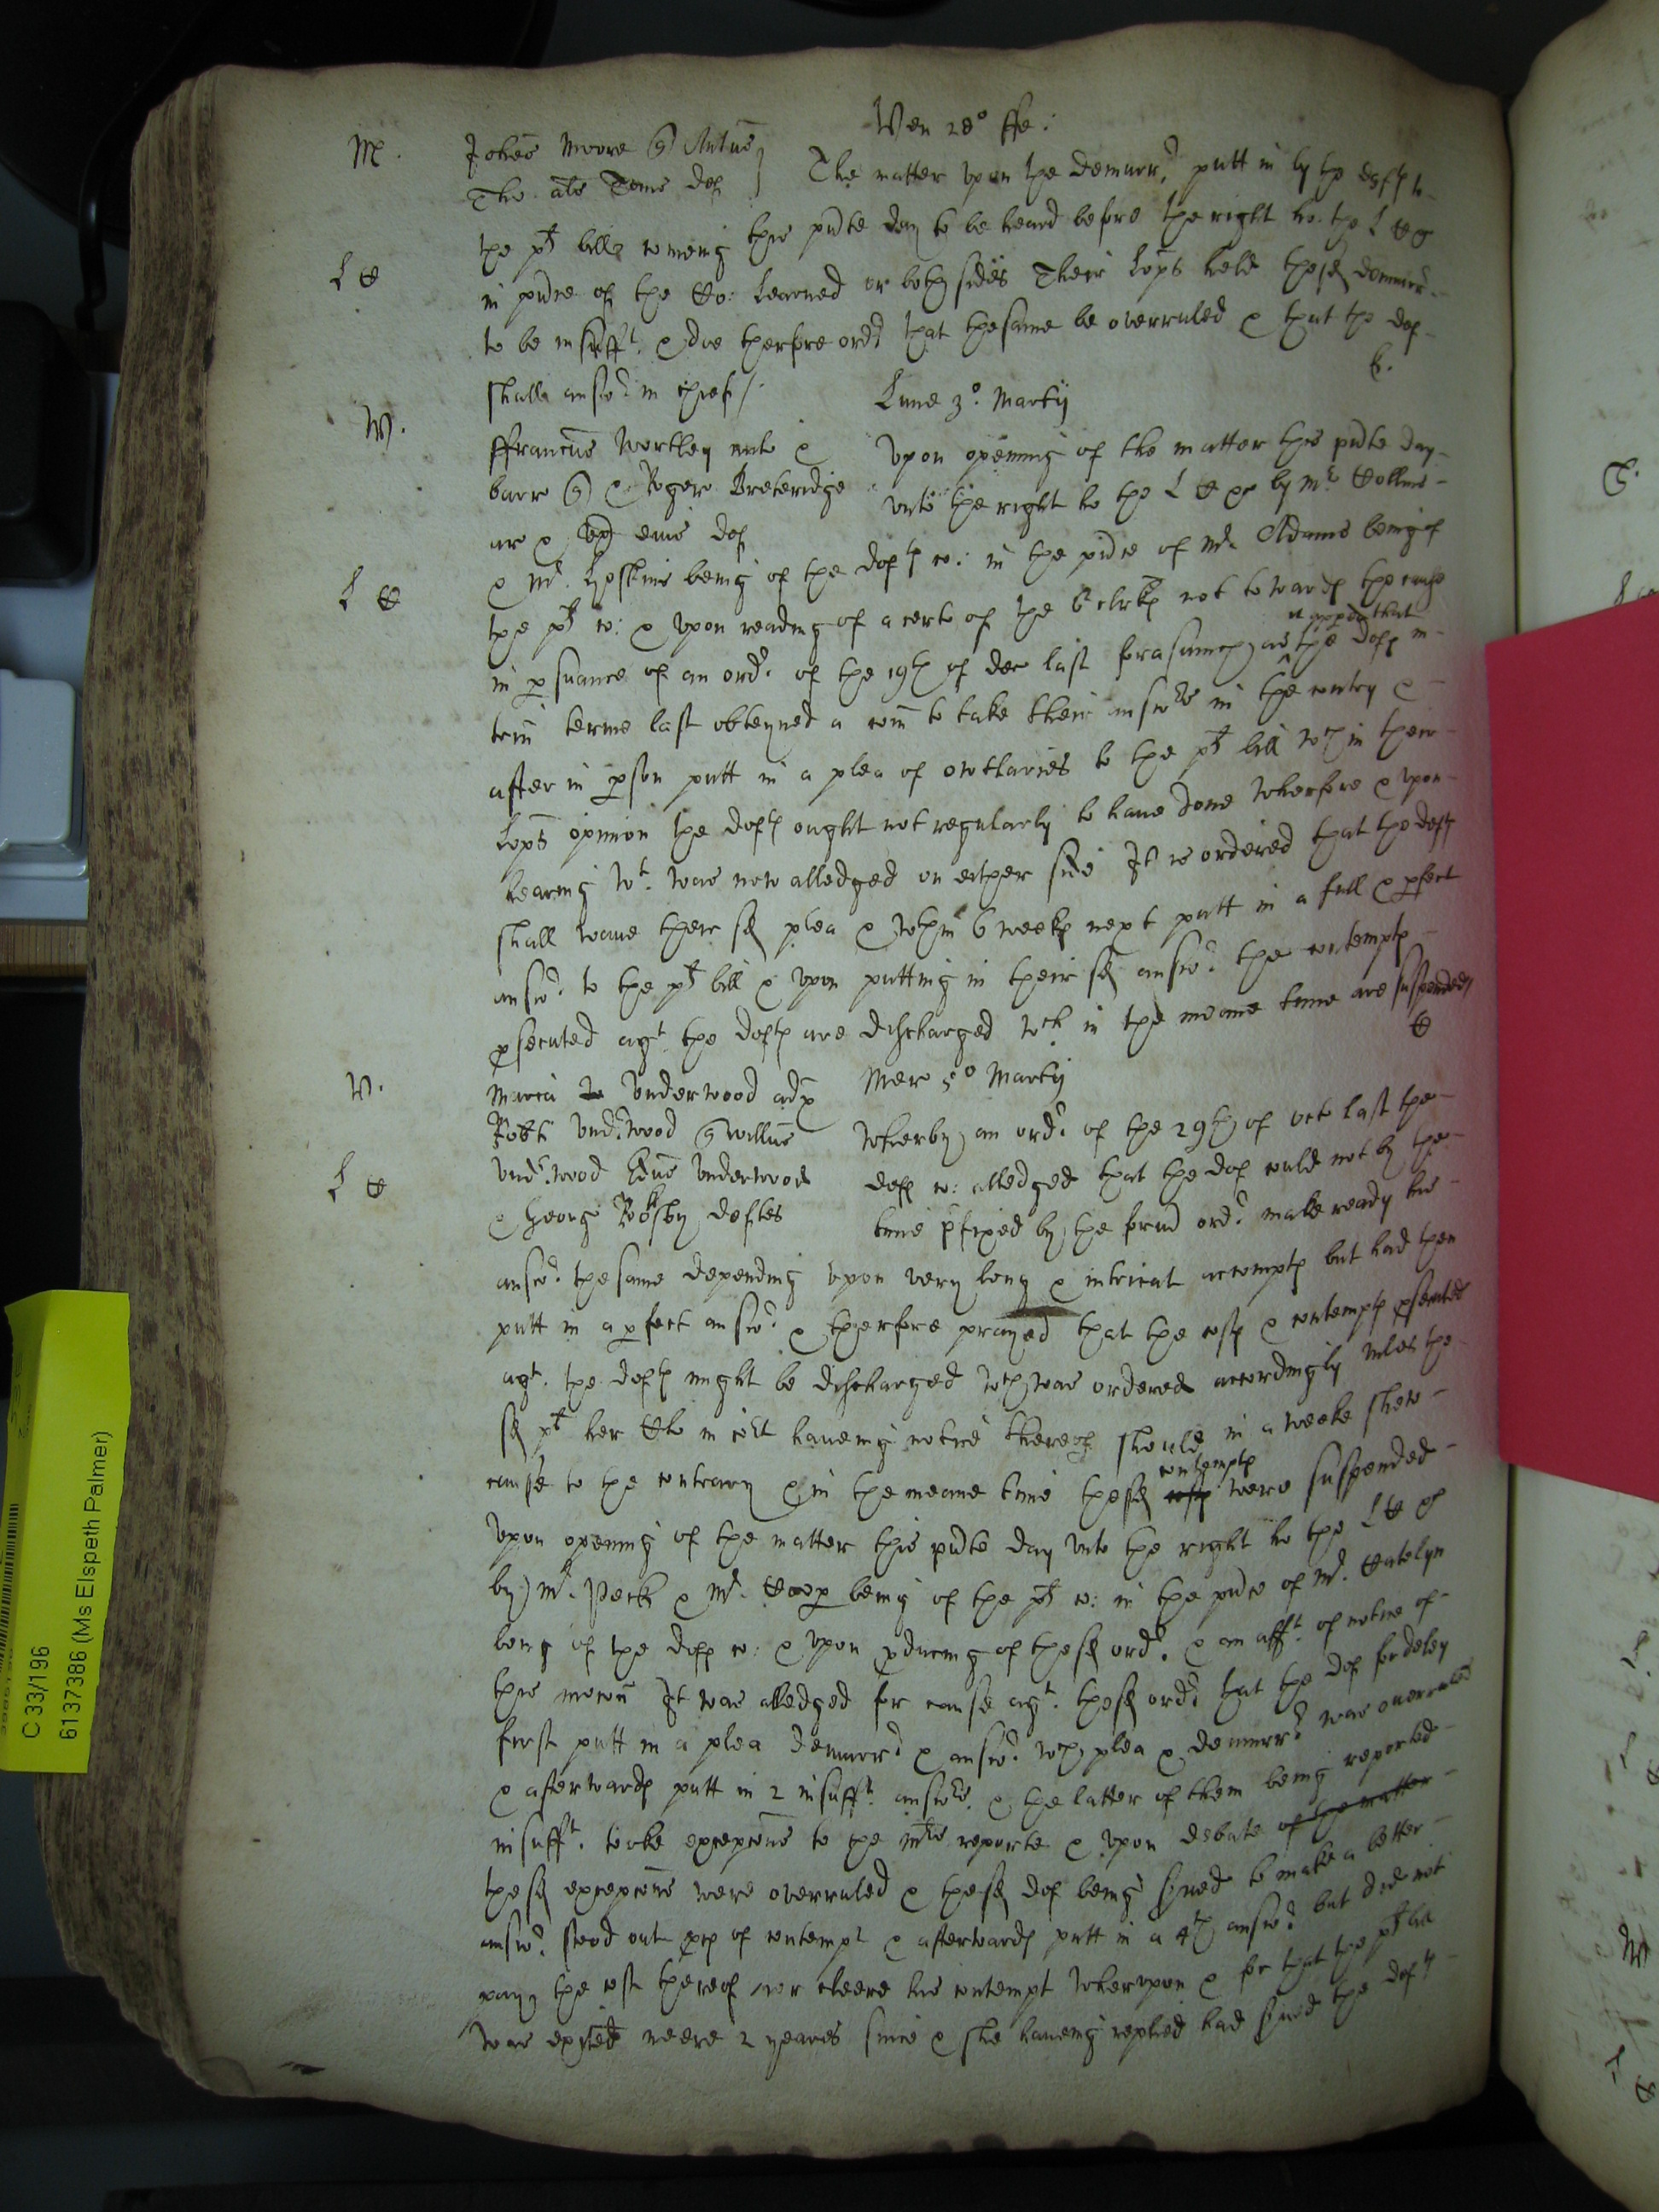 Ven 28o ffe:
M. Johes Moore q Antus
Tho als Toms def The matter upon the demurr. putt in by the defts to
the pts bill comeing this pnte day to be heard before the right ho: the L C
L C in pnce of the Co: learned on both sides Their Lopps held the sd demurr.
to be insufft. & doe therfore ordr that the same be overruled & that the def
shall answr. in cheif /. 
Lune 3o. Martij
W. ffrancus Wortley &
barr q & Rogero Breteridge
ar & eius def
Upon opening of the matter this pnte day
unto the right ho the L C by Mr Collins
& Mr. Hoskins being of the defts co: in the pnce of Mr Adams being of
L C the pts co: & upon reading of a cert of the 6 clrks not towards the cause
in psuance of an ordr. of the 19th of dec last forasmuch as it appeared that the defts in
trin terme last obteyned a com to take their answrs in the contry &
after in pson putt in a plea of outlaries to the pts bill wch in their
Lopps opinion the defts ought not regularly to have done wherfore & upon
heareing wt. was now alledged on either side It is ordered that the defts
shall wave their sd plea & wthin 6 weeks next putt in a full & pfect
answr. to the pts bill & upon putting in their sd answr. the contempts
psecuted agt. the defts are discharged wch in the meane tyme are suspended
V. Maria Underwood adx
Robti Undrwood q Willus
Undrwood Edus Underwood
L C & George Rooksby deftes
Mer 5o Martij
Wherby an ordr. of the 29th of octo last the
defts co: alledged that the def could not by the
time pfixed by the formd ordr. make ready his
answr. the same depending upon very long & intricat accompts but had then
putt in a pfect answr. & therfore prayed that the costs & contempts psecuted
agt. the defts might be discharged wch was ordered accordingly unles the
sd pt her Clk in cort haveing notice thereof should in a weeke shew
cause to the contrary & in the meane time the sd costs contempts were suspended
Upon opening of the matter this pnte day unto the right ho the L C
by Mr. Peck & Mr. being of the pts co: in the pnce of Mr. Catelyn
being of the defts co: & upon pducing of the sd ordr. & an afft. of notice of
this mocon It was alledged for cause agt. the sd ordr that the def for delay
first putt in a plea demurr. & answr. wch plea & demurr. was overruled
& afterwards putt in 2 insufft. answrs. & the latter of them being reported
insufft. tooke excepcons to the Mrs reporte & upon debate of the matter
the sd excepcons were overruled & the sd def being served to make a better
answr. stood out pces of contempt & afterwards putt in a 4th answr. but did not
pay the cost thereof nor cleere his contempt wherupon & for that the pts bill
was exhited neere 2 yeares since & she haveing replied had served the defts
C 33/196
6137386 (Ms Elspeth Palmer)